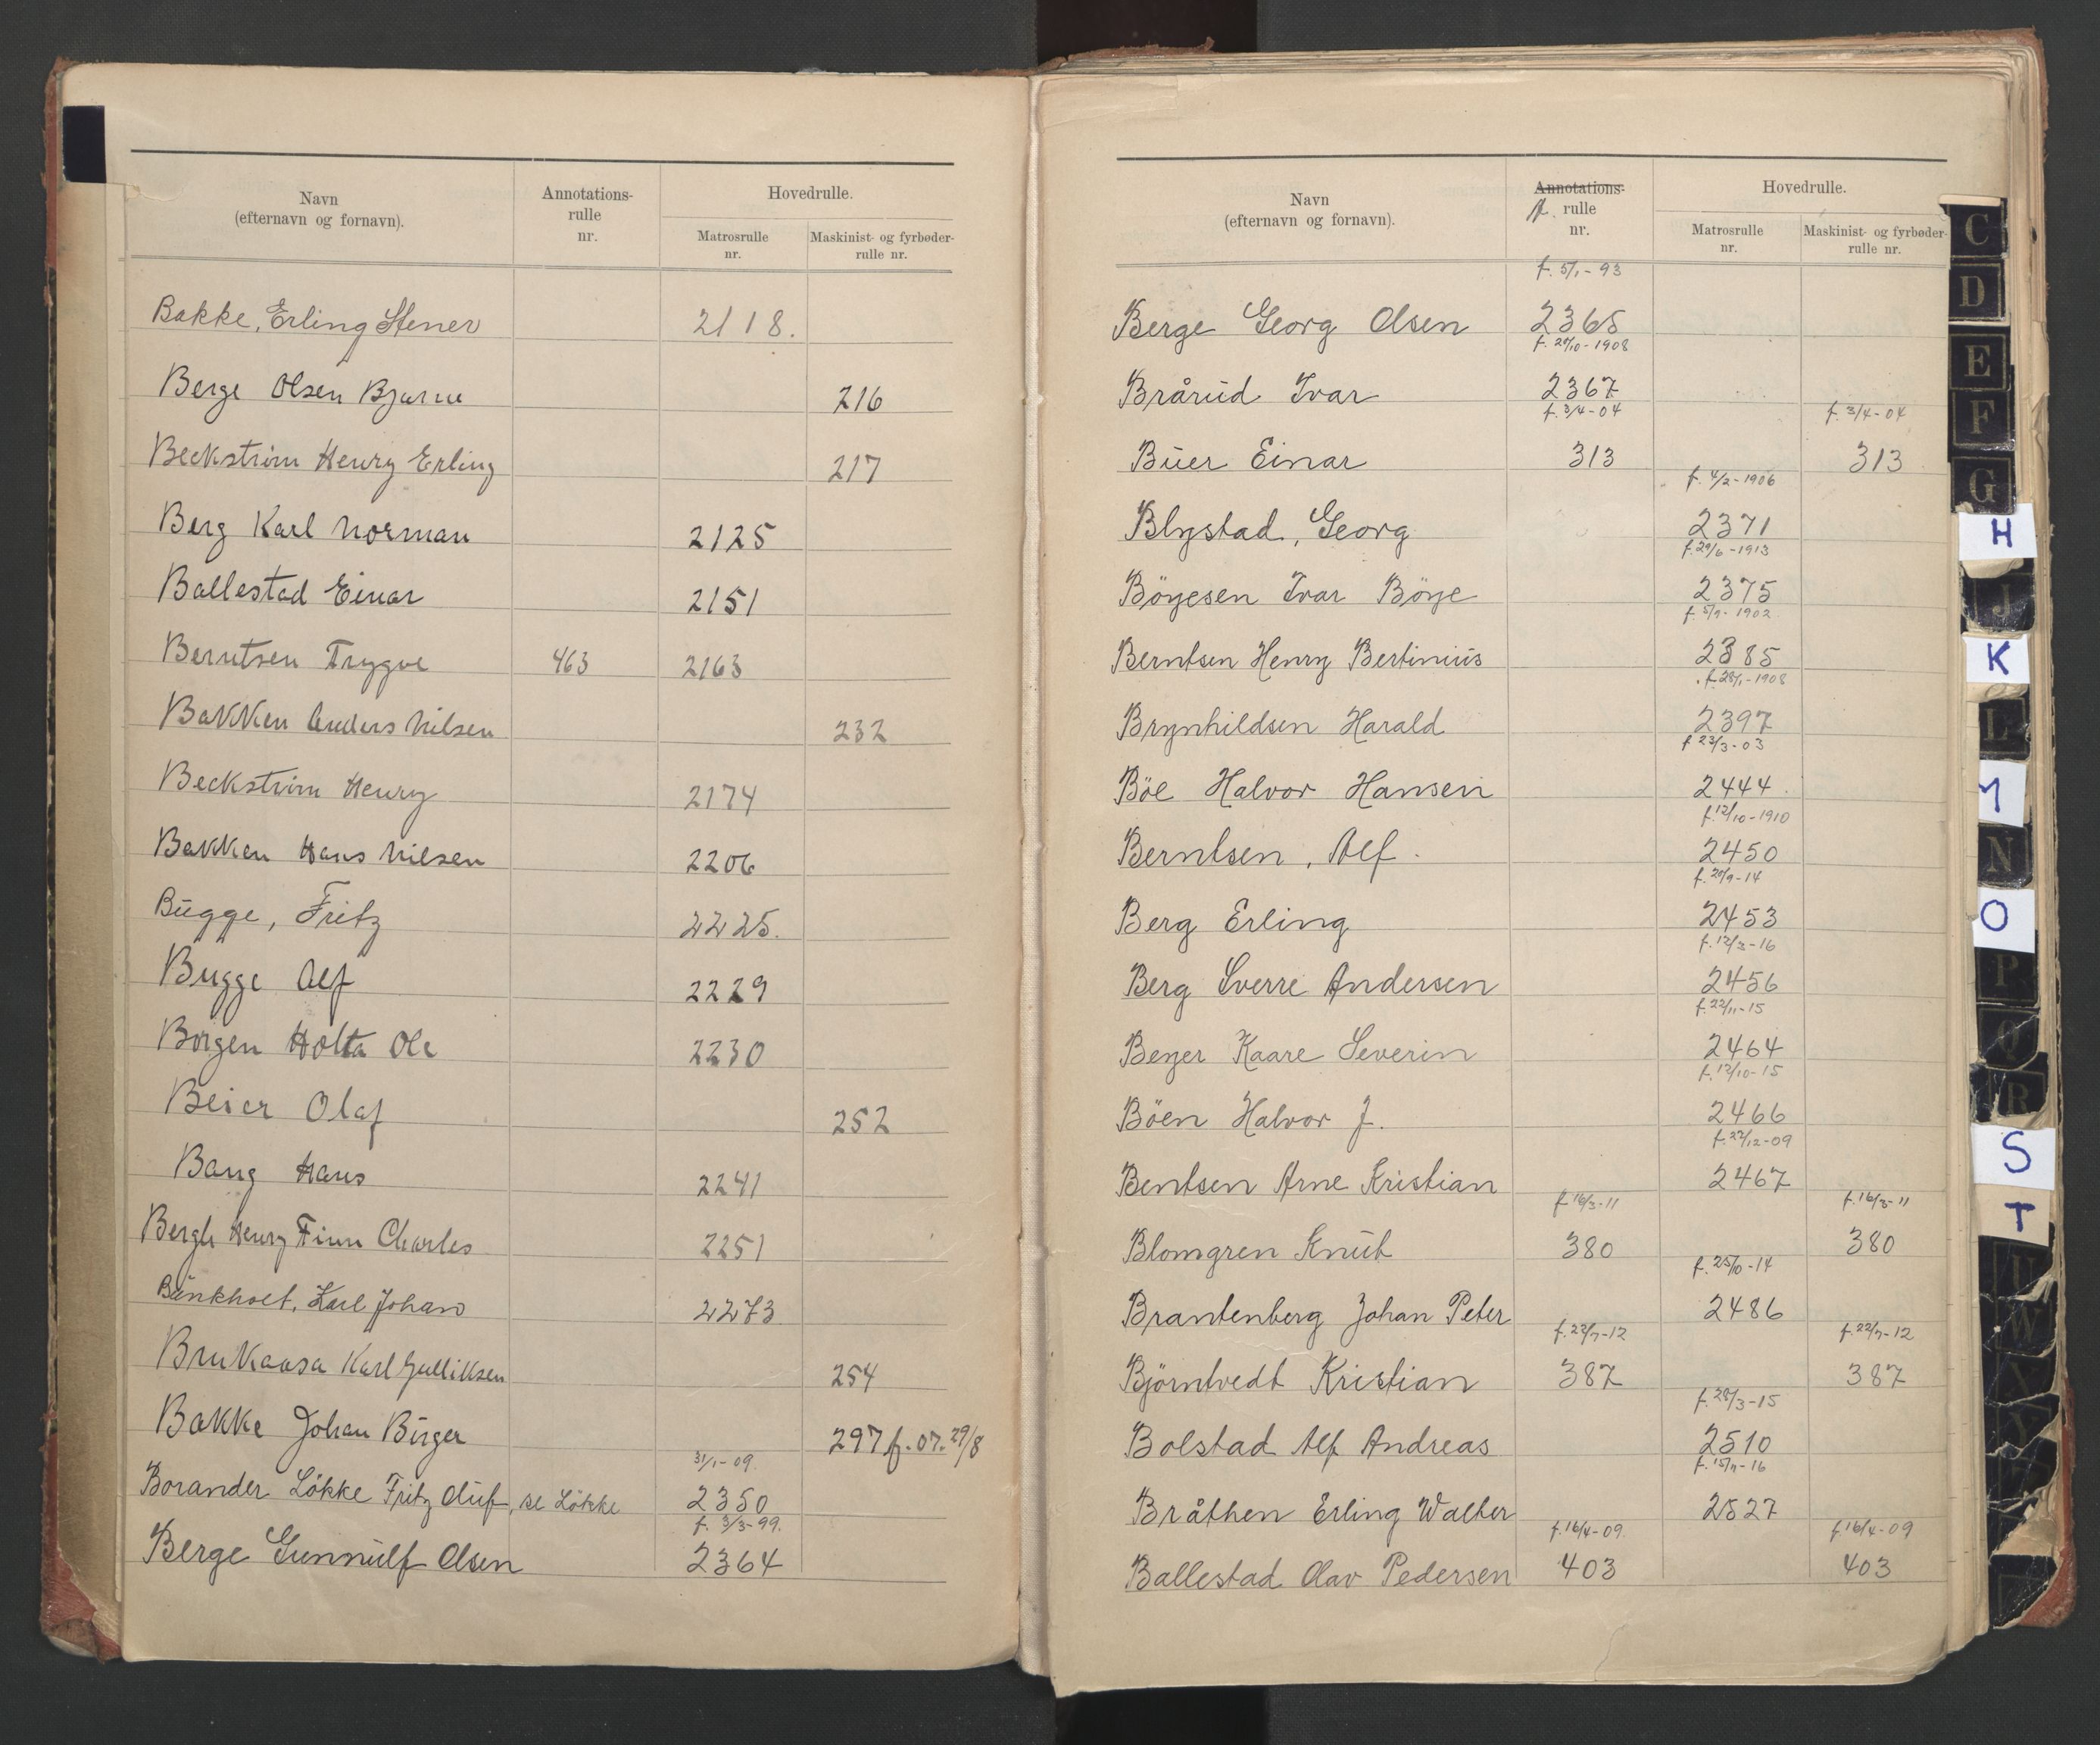 Navn
(efternavn og fornavn).
Annotations-
rulle
nr.
Hovedrulle.
Matrosrulle
nr.
Maskinist- og fyrbøder-
rulle nr.
Bakke, Erling Stener 2118.
Berge Olsen Bjarne 216
Beckstrøm Henry Erling 217
Berg Karl Norman 2125
Ballestad Einar 2151
Berntsen Trygve 463 2163
Bakken Anders Nilsen 232
Beckstrøm Henry 2174
Bakken Hans Nilsen 2206
Bugge, Fritz 2225.
Bugge Alf 2229
Borgen Holta Ole 2230
Beier Olaf 252
Bang Hans 2241
Bergh Henry Finn Charles 2251
Bunkholt, Karl Johan 2273
Brukaasa Karl Gulliksen 254
Bakke Johan Birger 297 f. 07. 29/8
31/1-09.
Borander Lökke Fritz Oluf, se Lökke 2350
f. 3/3-99.
Berge Gunnulf Olsen 2364
Navn
(efternavn og fornavn).
Annotations-
rulle
nr.
Hovedrulle.
Matrosrulle
nr.
Maskinist- og fyrbøder-
rulle nr.
f. 5/1-93
Berge Georg Olsen 2365
f. 29/10-1908
Brårud Ivar 2367
f. 3/4-04 f. 3/4-04
Buer Einar 313 313
f. 4/2-1906
Blystad, Georg 2371
f. 29/6-1913
Böyesen Ivar Böye 2375
f. 5/9-1902
Berntsen Henry Bertinius 2385
f. 28/1-1908
Brynhildsen Harald 2397
f 23/3-03
Böe Halvor Hansen 2444
f. 12/10-1910
Berntsen, Alf. 2450
f. 20/9-14
Berg Erling 2453
f. 12/3-16
Berg Sverre Andersen 2456
f. 22/11-15
Beyer Kaare Severin 2464
f. 12/10-15
Böen Halvor J. 2466
f. 22/12-09
Bentsen Arne Kristian 2467
f 16/3-11 f. 16/3-11
Blomgren Knut 380 380
f. 25/10-14
Brantenberg Johan Peter 2486
f. 22/7-12 f. 22/7-12
Björntvedt Kristian 387 387
f. 28/3-15
Bolstad Alf Andreas 2510
f. 15/7-16
Bråthen Erling Walter 2527
f. 16/4-09. f 16/4-09
Ballestad Olav Pedersen 403 403
C
D
E
F
G
H
J
K
L
M
N
O
P
Q
R
S
T
U
W
X
Y